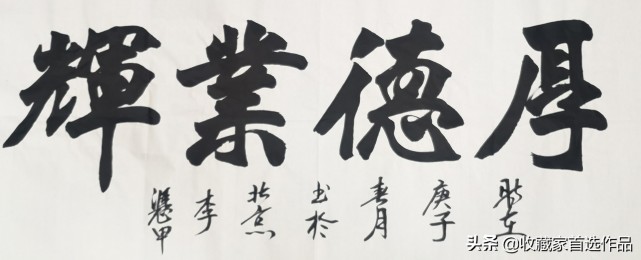 厚德業輝
时在庚子春月书於北京李甲
头条 @收藏家首选作品